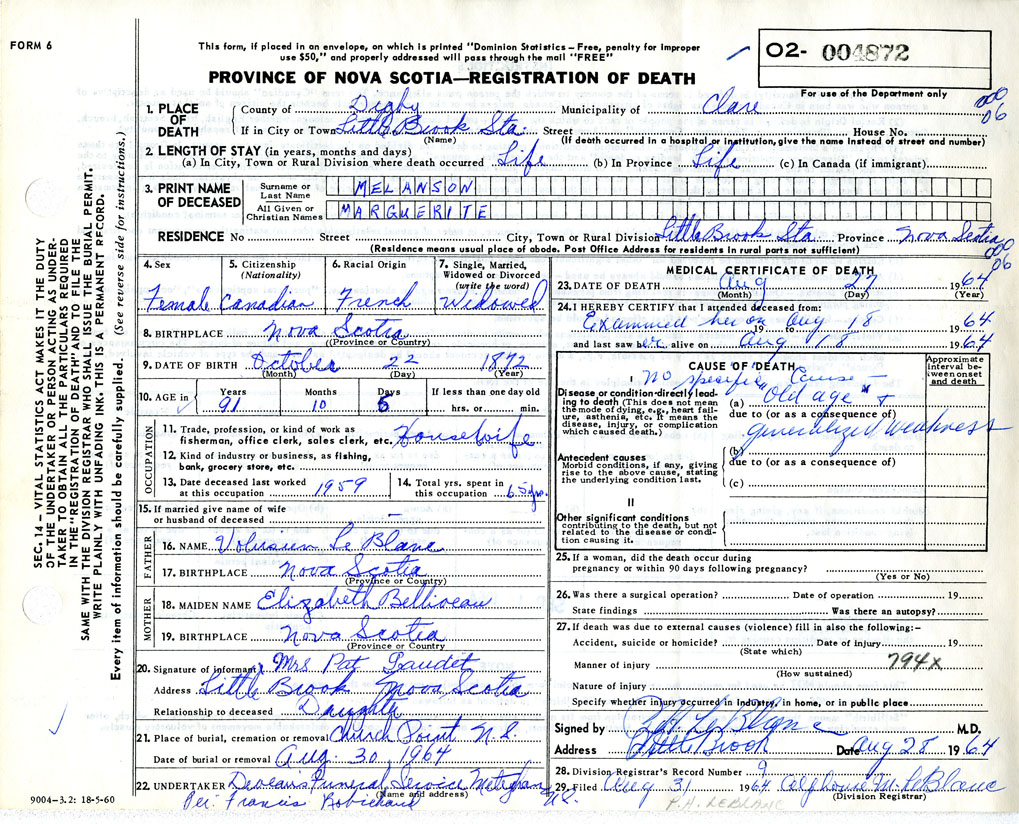 FORM 6
This form, if placed in an envelope, on which is printed "Dominion Statistics – Free, penalty for improper
use $50," and properly addressed will pass through the mail "FREE"
O2- 004872
For use of the Department only
PROVINCE OF NOVA SCOTIA—REGISTRATION OF DEATH
1. PLACE OF DEATH County of Digby Municipality of Clare
If in City or Town Little Brook Sta. Street House No.
(Name) (If death occurred in a hospital or institution, give the name instead of street and number)
000
06
2. LENGTH OF STAY (in years, months and days)
(a) In City, Town or Rural Division where death occurred Life (b) In Province Life (c) In Canada (if immigrant)
3. PRINT NAME OF DECEASED
Surname or Last Name MELANSON
All Given or Christian Names MARGUERITE
RESIDENCE No Street City, Town or Rural Division Little Brook Sta Province Nova Scotia
(Residence means usual place of abode. Post Office Address residents in rural parts is not sufficient)
000
06
4. Sex 5. Citizenship (Nationality) 6. Racial Origin 7. Single, Married, Widowed or Divorced (write the word)
Female Canadian French Widowed
8. BIRTHPLACE Nova Scotia
(Province or Country)
9. DATE OF BIRTH October 22 1872
(Month) (Day) (Year)
10. AGE in Years Months Days If less than one day old
91 10 5 hrs. or min.
OCCUPATION
11. Trade, profession, or kind of work as
fisherman, office clerk, sales clerk, etc. Housewife
12. Kind of industry or business, as fishing,
bank, grocery store, etc.
13. Date deceased last worked at this occupation 1959
14. Total yrs. spent in this occupation 65 yrs.
15. If married give name of wife
or husband of deceased —
FATHER
16. NAME Volusien Le Blanc
17. BIRTHPLACE Nova Scotia
(Province or Country)
MOTHER
18. MAIDEN NAME Elizabeth Belliveau
19. BIRTHPLACE Nova Scotia
(Province or Country
20. Signature of informant Mrs Pat Gaudet
Address Little Brook Nova Scotia
Relationship to deceased Daughter
21. Place of burial, cremation or removal Church Point N.S.
Date of burial or removal Aug. 30, 1964
22. UNDERTAKER Deveau's Funeral Service Meteghan N.S.
(Name and address)
Per: Francis Robichaud
9004-3.2: 18-5-60
MEDICAL CERTIFICATE OF DEATH
23. DATE OF DEATH Aug 27 1964
(Month) (Day) (Year)
24. I HEREBY CERTIFY that I attended deceased from:
Examined her on 19 to Aug 18 1964
and last saw her alive on Aug 18 1964
CAUSE OF DEATH
Approximate interval between onset and death
I No specific Cause —
Disease or condition directly leading to death (This does not mean the mode of dying, e.g., heart failure, asthenia, etc. It means the disease, injury, or complication which caused death.)
(a) "Old age" +
due to (or as a consequence of)
generalized Weakness
(b)
Antecedent causes
Morbid conditions, if any, giving rise to the above cause, stating the underlying condition last.
due to (or as a consequence of)
(c)
II
Other significant conditions
contributing to the death, but not related to the disease or condition causing it.
25. If a woman, did the death occur during
pregnancy or within 90 days following pregnancy?
(Yes or No)
26. Was there a surgical operation? Date of operation 19
State findings Was there an autopsy?
27. If death was due to external causes (violence) fill in also the following:-
Accident, suicide or homicide? Date of injury 19
(State which)
Manner of injury 794x
(How sustained)
Nature of injury
Specify whether injury occurred in industry, in home, or in public place
Signed by M.D.
Address Little Brook Date Aug 28 1964
28. Division Registrar's Record Number 9
29. Filed Aug 31 1964 Alphonse M. LeBlanc
(Division Registrar)
P.H. LEBLANC
SEC. 14 – VITAL STATISTICS ACT MAKES IT THE DUTY
OF THE UNDERTAKER OR PERSON ACTING AS UNDER-
TAKER TO OBTAIN ALL THE PARTICULARS REQUIRED
IN THE "REGISTRATION OF DEATH" AND TO FILE THE
SAME WITH THE DIVISION REGISTRAR WHO SHALL ISSUE THE BURIAL PERMIT.
WRITE PLAINLY WITH UNFADING INK. THIS IS A PERMANENT RECORD.
Every item of information should be carefully supplied. (See reverse side for instructions.)